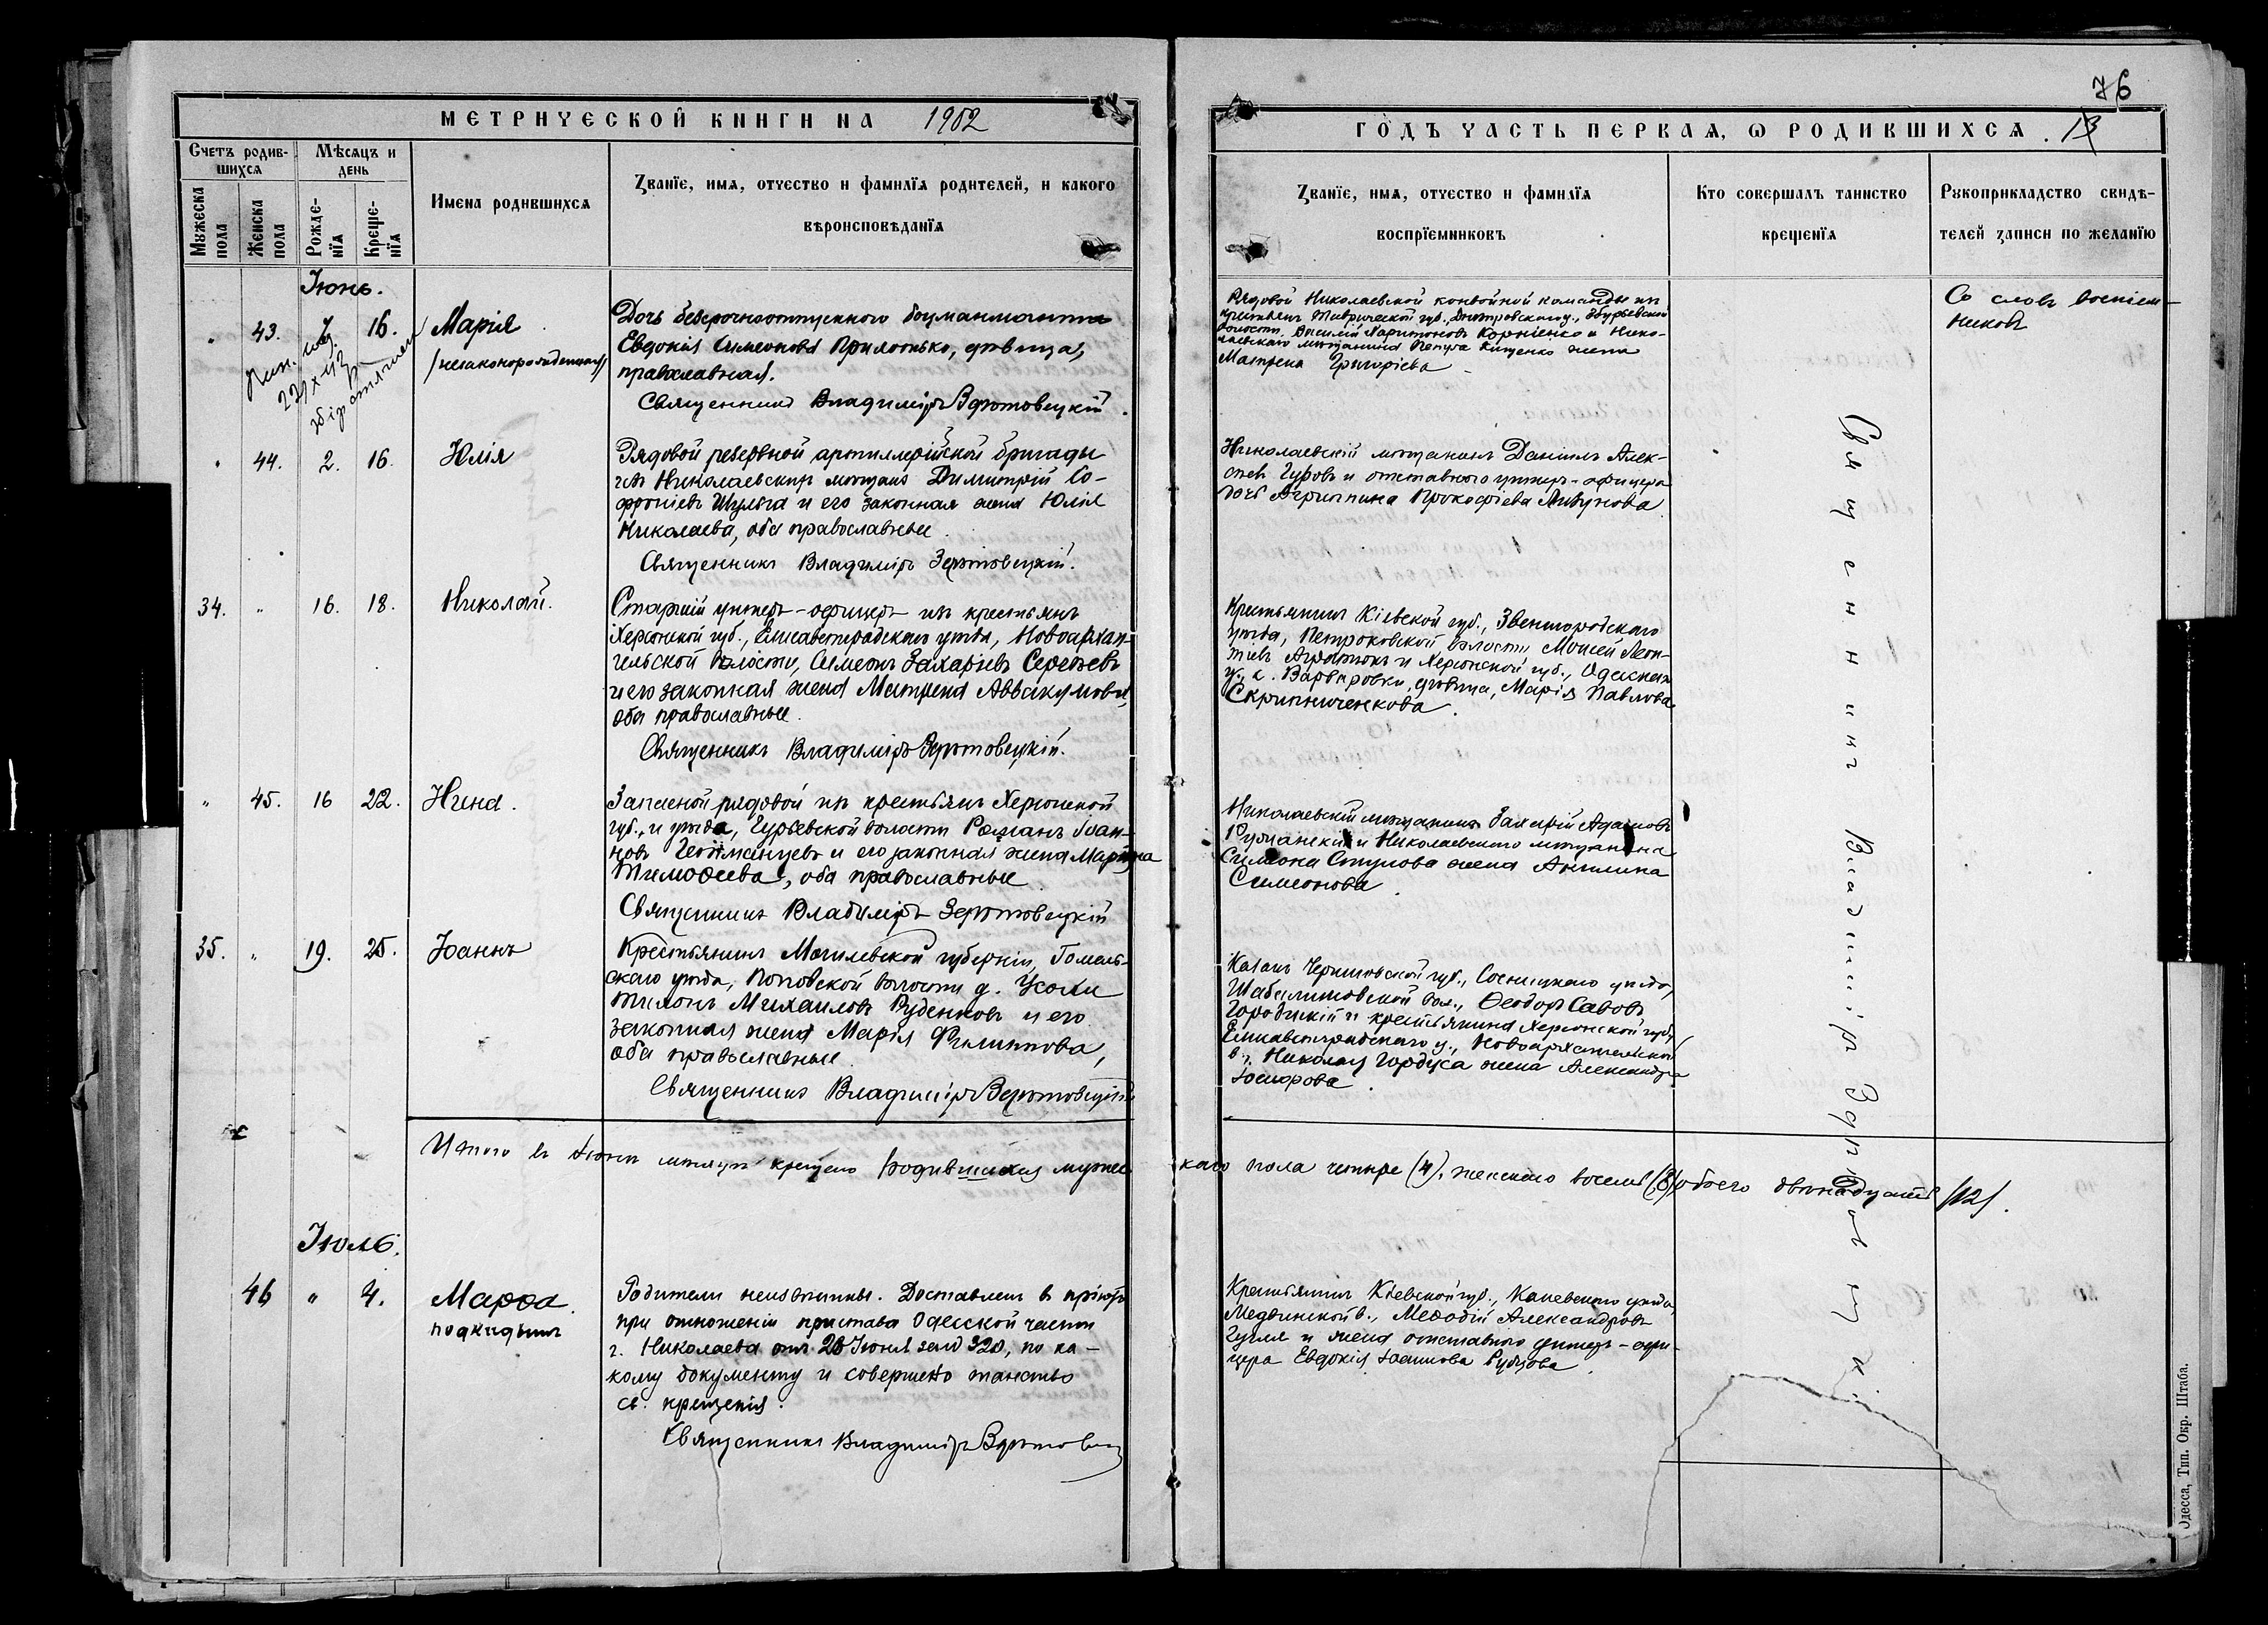 76
МЕТРИЧЕСКОЙ КНИГИ НА 1902
ГОДЪ ЧАСТЬ ПЕРВАЯ, Ѡ РОДИВШИХСЯ. 13
Счетъ родив-
шихся
Мѣсяцъ и
день
Мужеска
пола
Женска
пола
Рожде-
нїя
Креще-
нїя
Имена родившихся
Званїе, имя, отчество и фамилїя родителей, и какого
вѣроисповѣданїя
Званїе, имя, отчество и фамилїя
воспрїемниковъ
Кто совершалъ таинство
крещенїя
Рукоприкладство свидѣ-
телей записи по желанїю
Іюнь.
43. 16. Марія
(незаконорожденная)
Дочь безсрочноотпускного боцманмата
Евдокія Симеонова Прилотько, дѣвица,
православная.
Священникъ Владиміръ
Рядовой Николаевской конвойной команды изъ
крестьянъ Таврической губ., Днѣпровскаго у., Збурьевской
волости, Василій Харитоновъ Корніенко и Нико-
лаевскаго мѣщанина Петра Кищенко жена
Матрена Григоріева
Со словъ воспіем-
никовъ
44. 2. 16. Юлія
Рядовой резервной артиллерійской бригады
изъ Николаевскихъ мѣщанъ Димитрій Со-
фроніевъ Шульга и его законная жена Юлія
Николаева, оба православные.
Священникъ Владиміръ
Николаевскій мѣщанинъ Даніилъ Алек-
сѣевъ Гуровъ и отставного унтеръ-офицера
дочь Агриппина Прокофіева Ливунова
34. " 16. 18. Николай.
Старшій унтеръ-офицеръ изъ крестьянъ
Херсонской губ., Елисаветградскаго уѣзда, Новоархан-
гельской волости, Симеонъ Захаріевъ Сергѣевъ
и его законная жена Матрена Аввакумова,
оба православные.
Священникъ Владиміръ
Крестьянинъ Кіевской губ., Звенигородскаго
уѣзда, Петриковской волости Моисей Леон-
тіевъ и Херсонской губ., Одесскаго
у., с. Варваровки, дѣвица, Марія Павлова
Скрипниченкова.
" 45. 16 22. Нина.
Запасной рядовой изъ крестьянъ Херсонской
губ., и уѣзда, Гурьевской волости Романъ Іоан-
новъ и его законная жена Марина
Тимоѳеева, оба православные
Священникъ Владиміръ
Николаевскій мѣщанинъ Адамовъ
и Николаевскаго мѣщанина
Симеона жена
Симеонова
35. " 19. 25. Іоаннъ
Крестьянинъ Могилевской губерніи, Гомель-
скаго уѣзда, Поповской волости д. Усохи
Тихонъ Михаиловъ Руденковъ и его
законная жена Марія Филиппова,
оба православные
Священникъ Владиміръ
Казакъ Черниговской губ., Сосницкаго уѣзда,
Шабалиновской вол., Ѳеодоръ Савовъ
Городискій и крестьянина Херсонской губ.,
Елисаветградскаго у., Новоархангельской
в., Николая Гордуса жена Александра
Іосифова
Итого въ Іюнѣ мѣсяцѣ крещено родившихся мужес-
каго пола четыре (4), женскаго восемь (8) обоего двѣнадцать (12).
Іюль.
46 " 4. Марѳа.
подкидышъ
Родители неизвѣстны. Доставленъ въ пріютъ
при отношеніи пристава Одесской части
г. Николаева отъ 26 Іюня за № 320, по ка-
кому документу и совершено таинство
св. крещенія.
Священникъ Владиміръ
Крестьянинъ Кіевской губ., Каневскаго уѣзда
Медвинской в., Меѳодій Александровъ
и жена отставного унтеръ-офи-
цера Евдокія Іоакимова Рубцова
Священникъ Владиміръ
Одесса, Тип. Окр. Штаба.